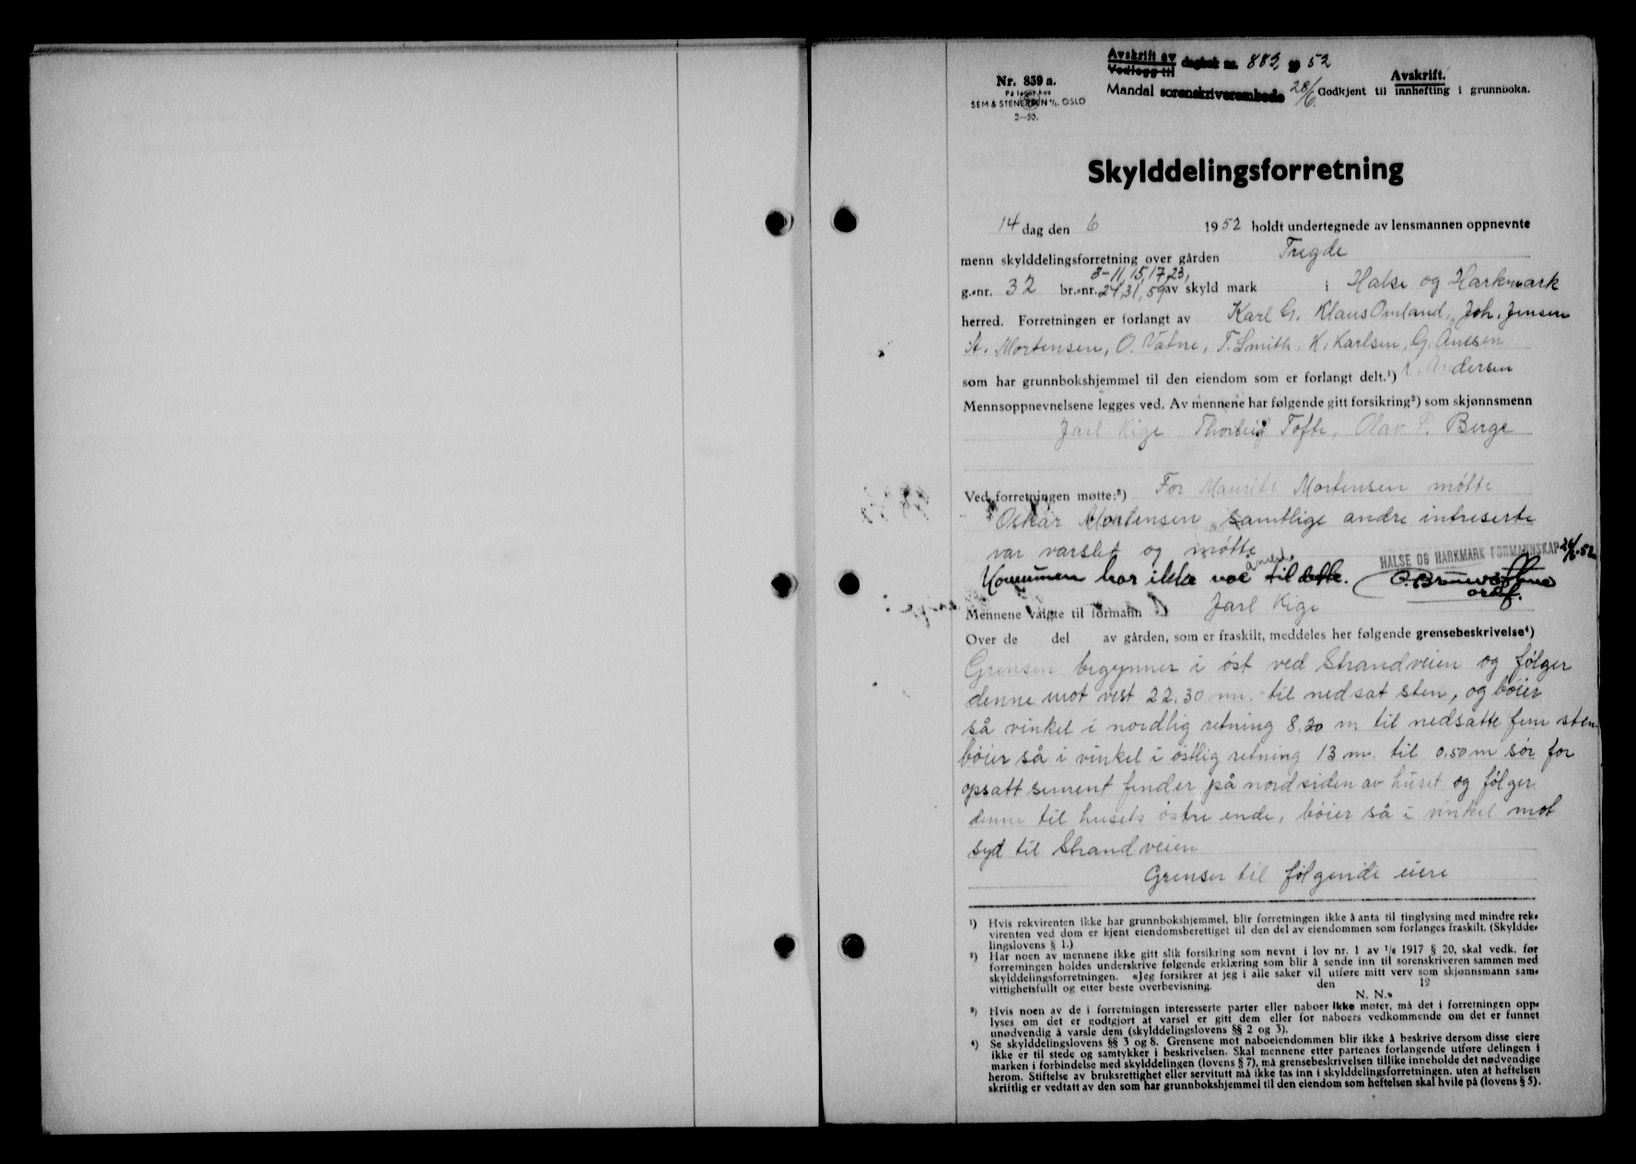 Avskrift av
Vedlegg til dagbok nr. 883, 19 52
Nr. 839 a.
På lager hos
SEM & STENERSEN A/S. OSLO
2—50.
Mandal sorenskriverembede 28/6
Avskrift.
Godkjent til innhefting i grunnboka.
Skylddelingsforretning
14 dag den 6 1952 holdt undertegnede av lensmannen oppnevnte
menn skylddelingsforretning over gården Tregde
3-11, 15, 17, 23,
g.-nr. 32 br.-nr. 24, 31, 59 av skyld mark i Halse og Harkmark
herred. Forretningen er forlangt av Karl G. Klaus Omland, Joh. Jensen
Mortensen, O. Vatne, T. Smith, K. Karlsen, G.
som har grunnbokshjemmel til den eiendom som er forlangt delt.¹) Andersen
Mennsoppnevnelsene legges ved. Av mennene har følgende gitt forsikring²) som skjønnsmenn
Jarl Kige Thorleif Tofte, Olav P. Berge
Ved forretningen møtte:³) For Maurits Mortensen møtte
Oskar Mortensen samtlige andre intreserte
var varslet og møtte
HALSE OG HARKMARK FORMANNSKAP 24/6-52
Kommunen har ikke noe til dette.
ordf.
Mennene valgte til formann Jarl Kige
Over de del av gården, som er fraskilt, meddeles her følgende grensebeskrivelse⁴)
Grensen begynner i öst ved Strandveien og følger
denne mot vest 22.30 m. til nedsat sten, og böier
så vinkel i nordlig retning 8.20 m til nedsatte fem sten
böier så i vinkel i östlig retning 13 m. til 0,50 m sör for
opsatt sement fender på nordsiden av huset og følger
denne til husets östre ende, böier så i vinkel mot
syd til Strandveien
Grenser til følgende eiere
¹) Hvis rekvirenten ikke har grunnbokshjemmel, blir forretningen ikke å anta til tinglysing med mindre rek-
virenten ved dom er kjent eiendomsberettiget til den del av eiendommen som forlanges fraskilt. (Skyldde-
lingslovens § 1.)
²) Har noen av mennene ikke gitt slik forsikring som nevnt i lov nr. 1 av 1/6 1917 § 20, skal vedk. før
forretningen holdes underskrive følgende erklæring som blir å sende inn til sorenskriveren sammen med
skylddelingsforretningen. «Jeg forsikrer at jeg i alle saker vil utføre mitt verv som skjønnsmann sam-
vittighetsfullt og etter beste overbevisning. den 19
N. N.»
³) Hvis noen av de i forretningen interesserte parter eller naboer ikke møter, må det i forretningen opp-
lyses om det er godtgjort at varsel er gitt dem eller for naboers vedkommende om det er funnet
unødvendig å varsle dem (skylddelingslovens §§ 2 og 3).
⁴) Se skylddelingslovens §§ 3 og 8. Grensene mot naboeiendommen blir ikke å beskrive dersom disse eiere
ikke er til stede og samtykker i beskrivelsen. Skal mennene etter partenes forlangende utføre delingen i
marken i forbindelse med skylddelingen (lovens § 7), må grensebeskrivelsen tillike inneholde det nødvendige
herom. Stiftelse av bruksrettighet eller servitutt må ikke tas inn i skylddelingsforretningen, uten at heftelsen
skriftlig er vedtatt av den som har grunnbokshjemmel til den eiendom som heftelsen skal hvile på (lovens § 5).